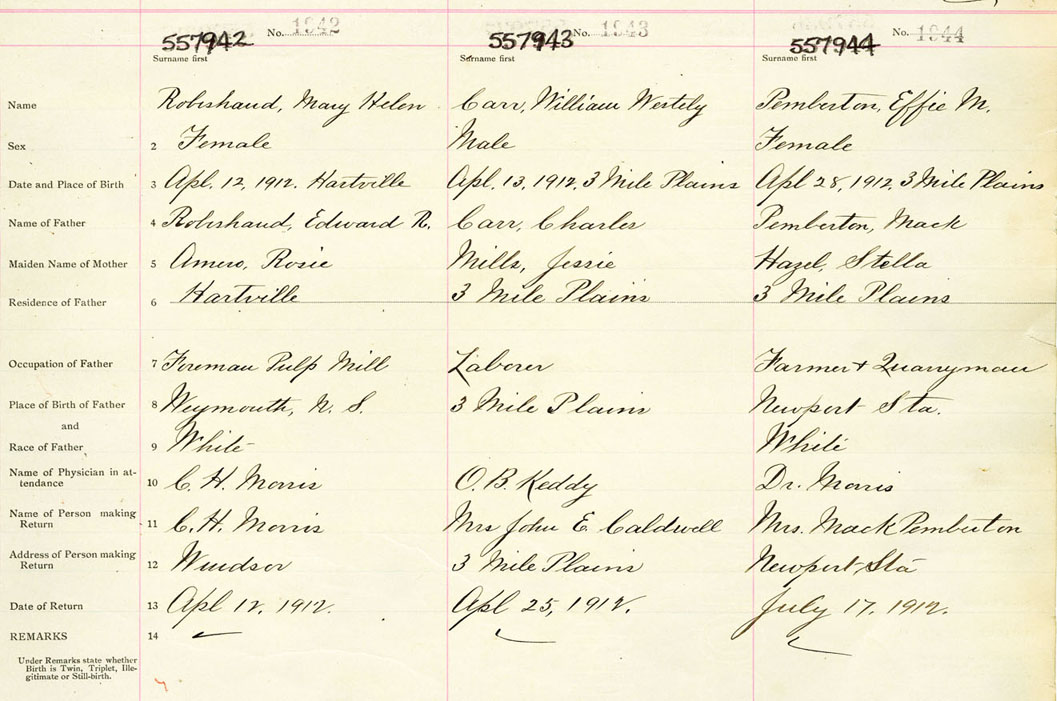 557942 No. 1942 557943 No. 1943 557944 No. 1944
Surname first Surname first Surname first
Name Robishaud, Mary Helen Carr, William Westely Pemberton, Effie M.
Sex 2 Female Male Female
Date and Place of Birth 3 Apl. 12, 1912. Hartville Apl. 13, 1912, 3 Mile Plains Apl 28, 1912, 3 Mile Plains
Name of Father 4 Robishaud, Edward R. Carr, Charles Pemberton, Mack
Maiden Name of Mother 5 Amero, Rosie Mills, Jessie Hazel, Stella
Residence of Father 6 Hartville 3 Mile Plains 3 Mile Plains
Occupation of Father 7 Foreman Pulp Mill Laborer Farmer + Quarryman
Place of Birth of Father 8 Weymouth, N. S. 3 Mile Plains Newport Sta.
and
Race of Father 9 White White
Name of Physician in at-
tendance 10 C. H. Morris O. B. Keddy Dr. Morris
Name of Person making
Return 11 C. H. Morris Mrs John E. Caldwell Mrs. Mack Pemberton
Address of Person making
Return 12 Windsor 3 Mile Plains Newport Sta
Date of Return 13 Apl 12, 1912. Apl 25, 1912. July 17, 1912.
REMARKS 14
Under Remarks state whether
Birth is Twin, Triplet, Ille-
gitimate or Still-birth.